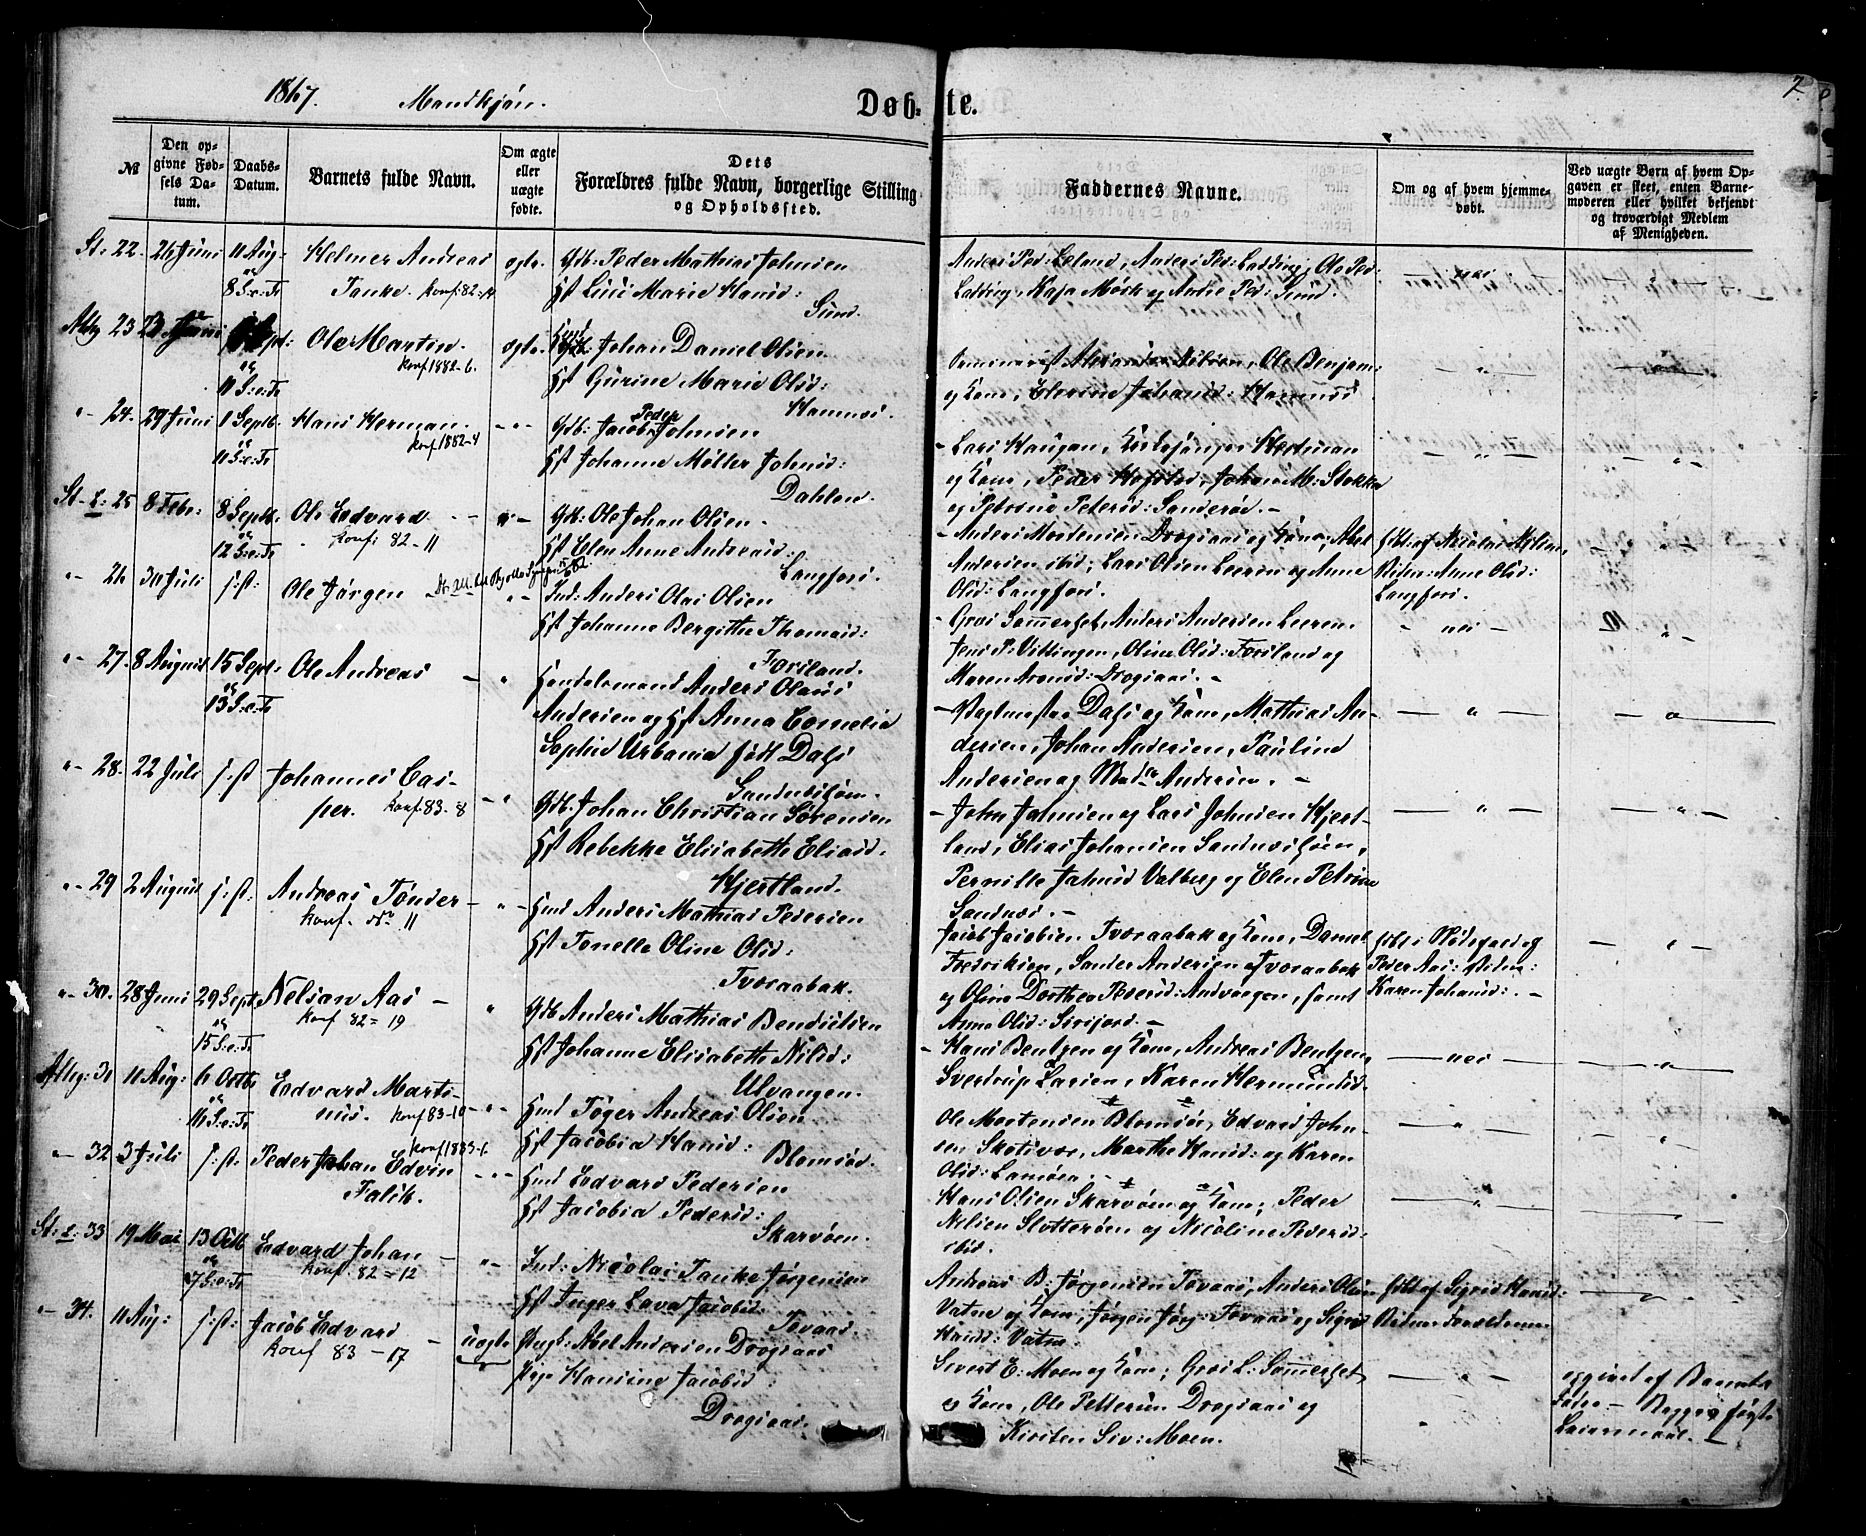 1867. Mandkjøn. Døbte. 7.
№
Den opgivne Fødsels Datum.
Daabs-Datum.
Barnets fulde Navn.
Om ægte eller uægte fødte.
Dets Forældres fulde Navn, borgerlige Stilling og Opholdssted.
Faddernes Navne.
Om og af hvem hjemmedøbt.
Ved uægte Børn af hvem Opgaven er skeet, enten Barnemoderen eller hvilket bekjendt og troværdigt Medlem af Menigheden.
St: 22. 26 Juni 11 Aug: 8 S: e: Tr
Helmer Andreas
Tanke. konf: 82-14
ægte.
Gdb: Peder Mathias Johnsen
Hst Lina Marie Hansd:
Sund.
Anders Ped: Leland, Anders Ped: Ladding, Ole Ped:
Ladding, Kaja Mörk og Andre Ped: Sund.
nei
Alstg 23 23 Juni Sept: 11 S: e: Tr
Ole Martin.
konf 1882-6.
ægte.
Johan Daniel Olsen
Hst Gurine Marie Olsd:
Hamnes.
Seminarist Nilsen, Ole Benjam:
og Kone, Elevine Johansd: Hamnes
"- 24. 29 Juni 1 Septb. 11 S: e: Tr
Hans Herman.
konf 1882-4
Gdb: Jacob Peder Johnsen
Hst Johanne Møller Johnsd:
Dahlen.
- Lars Haugan, Kirkesanger Hartman
og Kone, Peder Hofstad, Johan M: Stokka
og Petrine Petersd: Sanderød. -
St- 8: 25 8 Febr: 8 Septb. 12 S: e: Tr
Ole Edvard
konf: 82-11
Gdb: Ole Johan Olsen.
Hst Elen Anne Andreasd:
Langfors.
- Anders Mortensen Drogsaas og Kone, Abel
Andersen ibid; Lars Olsen Leeren og Anne
Olsd: Langfors.
hbt: af Nicolai Nilsen,
Vidne: Anne Olsd:
Langfors.
"- 26 30 Juli s: st:
Ole Jørgen
Ind: Anders Olai Olsen
Hst Johanne Bergithe Thomasd:
Forsland.
- Groi Sommerset, Anders Andersen Leeren.
Jens P: Vittingen, Oline Olsd: Forsland og
Maren Aronsd: Drogsaas. -
- nei -
"- 27. 8 August 15 Sept: 13 S: e: Tr
Ole Andreas
Handelsmand Anders Olaus
Andersen og Hst Anna Cornelia
Sophie Urbania født Dass
Sandnessjøen.
- Vagtmester Dass og Kone, Mathias An-
dersen, Johan Andersen, Pauline
Andersen og Mad: Andersen. -
"- 28. 22 Juli s: st:
Johannes Cas-
per. konf: 83-8
Gdb: Johan Christian Sørensen
Hst Rebekke Elisabeth Eliasd.
Hjertland.
- John Johnsen og Lars Johnsen Hjert-
land, Elias Johansen Sandnessjøen,
Pernille Johnsd Valberg og Elen Petrine
Sandnes. -
"- 29 2 August s: st:
Andreas Tønder
konf. do 11
Hmd Anders Mathias Pedersen
Hst Tonelle Oline Olsd:
Tveraabak.
Jacob Jacobsen Tveraabak og Kone, Daniel
Fredriksen, Sander Andersen Tveraabak
og Oline Dorthea Pedersd: Andvaagen, samt
Anne Olsd: Sirifjord. -
Peder Aas: Vidne:
Karen Johansd:. -
"- 30. 28 Juni 29 Sept. 15 S: e: Tr
Nelsan Aas -
konf 82=19
Gdb Anders Mathias Bendictsen
Hst Johanne Elisabeth Nilsd:
Ulvangen.
- Hans Bentzen og Kone, Andreas Bentzen,
Sverdrup Larsen, Karen Hermundsd.
- nei -
Alstg: 31 11 Aug: 6 Octb 16 S: e: Tr
Edvard Marti-
nus. konf 83-10
Hmd Tøger Andreas Olsen
Hst Jacobia Hansd:
Blomsø.
Ole Mortensen Blomsø, Edvard John-
sen Skotsvær, Marthe Hansd: og Karen
Olsd: Lamøen. -
"- 32 3 Juli s: st:
konf 1883-6
Peder Johan Edvin
Falik.
Hmd Edvard Pedersen
Hst Jacobia Pedersd:
Skarvøen.
Hans Olsen Skarvøen og Kone, Peder
Nilsen Slotterøen og Nicoline Pedersd
ibid.
St: 8: 33 19 Mai 13 Octb 17 S: e: Tr
Edvard Johan
konf. 82=12
Ind: Nicolai Tanke Jørgensen
Hst Inger Lava Jacobsd.
Tovaas.
Andreas B: Jørgensen Tovaas, Anders Olsen
Vatne og Kone, Jørgen Jørg: Tovaas og Sigrid
Hansd: Vatne.
hbt af Sigrid Hansd:
Vidne Forældrene
"- 34. 11 Aug: s: st:
Jacob Edvard
konf 83-17
uægte
Ungk: Abel Andersen Drogsaas
Pige Hansine Jacobsd:
Drogsaas.
Sivert E: Moen og Kone, Groi L: Sommerset
og Kone, Ole Pettersen Drogsaas og
Kirsten Siv: Moen.
opgivet af Barnets
Fader - Begges første
Leiermaal. -